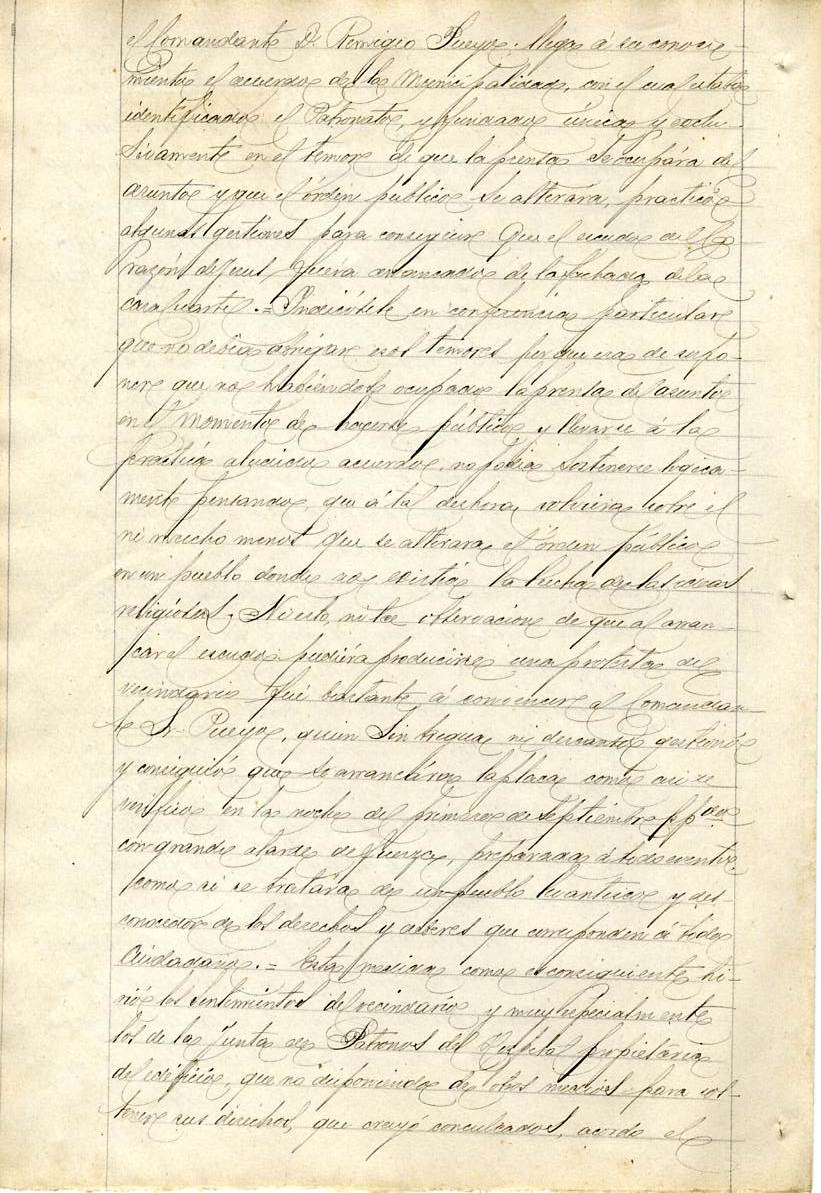 el Comandante D. Remigio Pueyo llega á su conoci-
miento el acuerdo de la Municipalidad, con el cual estaba
identificado el Patronato, y fundado única y exclu-
sivamente en el temor de que la prensa se ocupára del
asunto y que el órden público se alterára, practicó
algunas gestiones para conseguir que el escudo del Co
razón de Jesus fuera arrancado de la fachada de la
casa cuartel.= Indicósele en conferencia particular
que no debia abrigar esos temores por que era de supo-
ner que no habiéndose ocupado la prensa del asunto
en el momento de hacerse público y llevarse á la
práctica el acuerdo, no podia sostenerse lógica-
mente pensando, que á tal deshora, volviera sobre él
ni mucho menos que se alterara el órden público
en un pueblo donde no existia la lucha de las ideas
religiosas. Ni esto, ni la observacion de que al arran-
car el escudo pudiéra producirse una protesta del
vecindario fué bastante á convencer al Comandan-
te Sr. Pueyo, quien sin tregua ni descanso gestionó
y consiguió que se arrancára la placa como asi se
verificó en la noche del primero de Septiembre ppdo
con grande alarde de fuerza, preparada á todo evento,
como si se tratára de un pueblo levantisco y des-
conocedor de los derechos y deberes que corresponden á todo
Ciudadano.= Esta medida como es consiguiente hi-
rió los sentimientos del vecindario y muy especialmente
los de la Junta de Patronos del Hospital propietaria
del edificio, que no disponiendo de otros medios para sos-
tener sus derechos, que creyó conculcados, acordó el